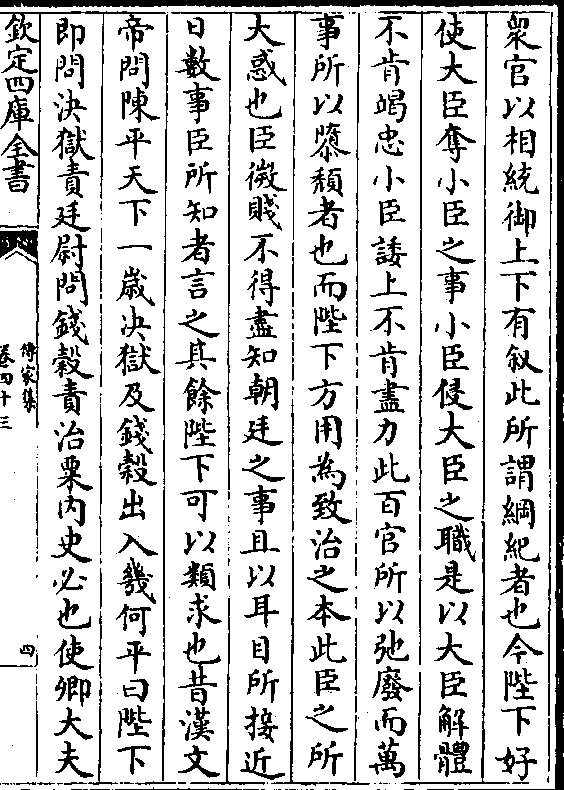 衆官以相統御上下有叙此所謂綱紀者也今陛下好
使大臣奪小臣之事小臣侵大臣之職是以大臣解體
不肯竭忠小臣諉上不肯盡力此百官所以弛廢而萬
事所以隳頽者也而陛下方用為致治之本此臣之所
大惑也臣微賤不得盡知朝廷之事且以耳目所接近
日數事臣所知者言之其餘陛下可以類求也昔漢文
帝問陳平天下一歳决獄及錢穀出入幾何平曰陛下
即問決獄責廷尉問錢穀責治粟内史必也使卿大夫
欽定四庫全書
傳家集
卷四十三
四